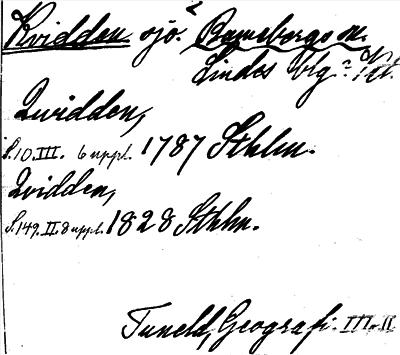 Kvidden sjö. Ramsbergs sn.
Lindes blg
Quidden,
S. 10. III. 6 uppl. 1787 Sthlm.
Qvidden,
S. 149. II. 8 uppl. 1828 Sthlm.
Tuneld, Geografi. III. II